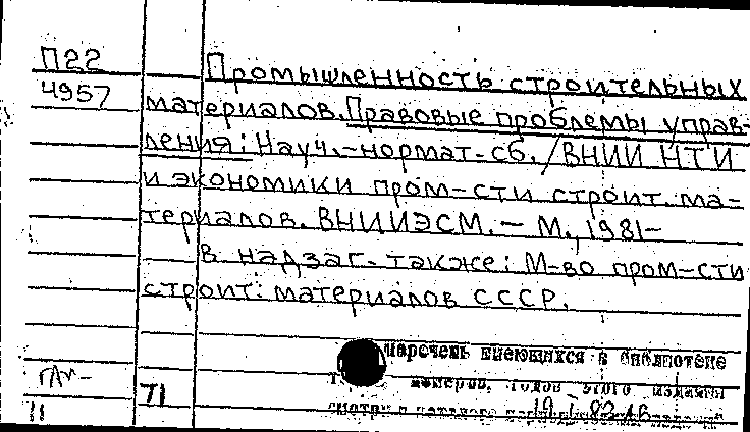 П22
4957
Промышленность строительных
материалов. Правовые проблемы управ-
ления: Науч.-нормат. сб. / ВНИИ НТИ
и экономики пром-сти строит. ма-
териалов. ВНИИЭСМ. — М., 1981-
В надзаг. также: М-во пром-сти
строит. материалов СССР.
Перечень имеющихся в библиотеке
номеров, годов этого издания
71
11